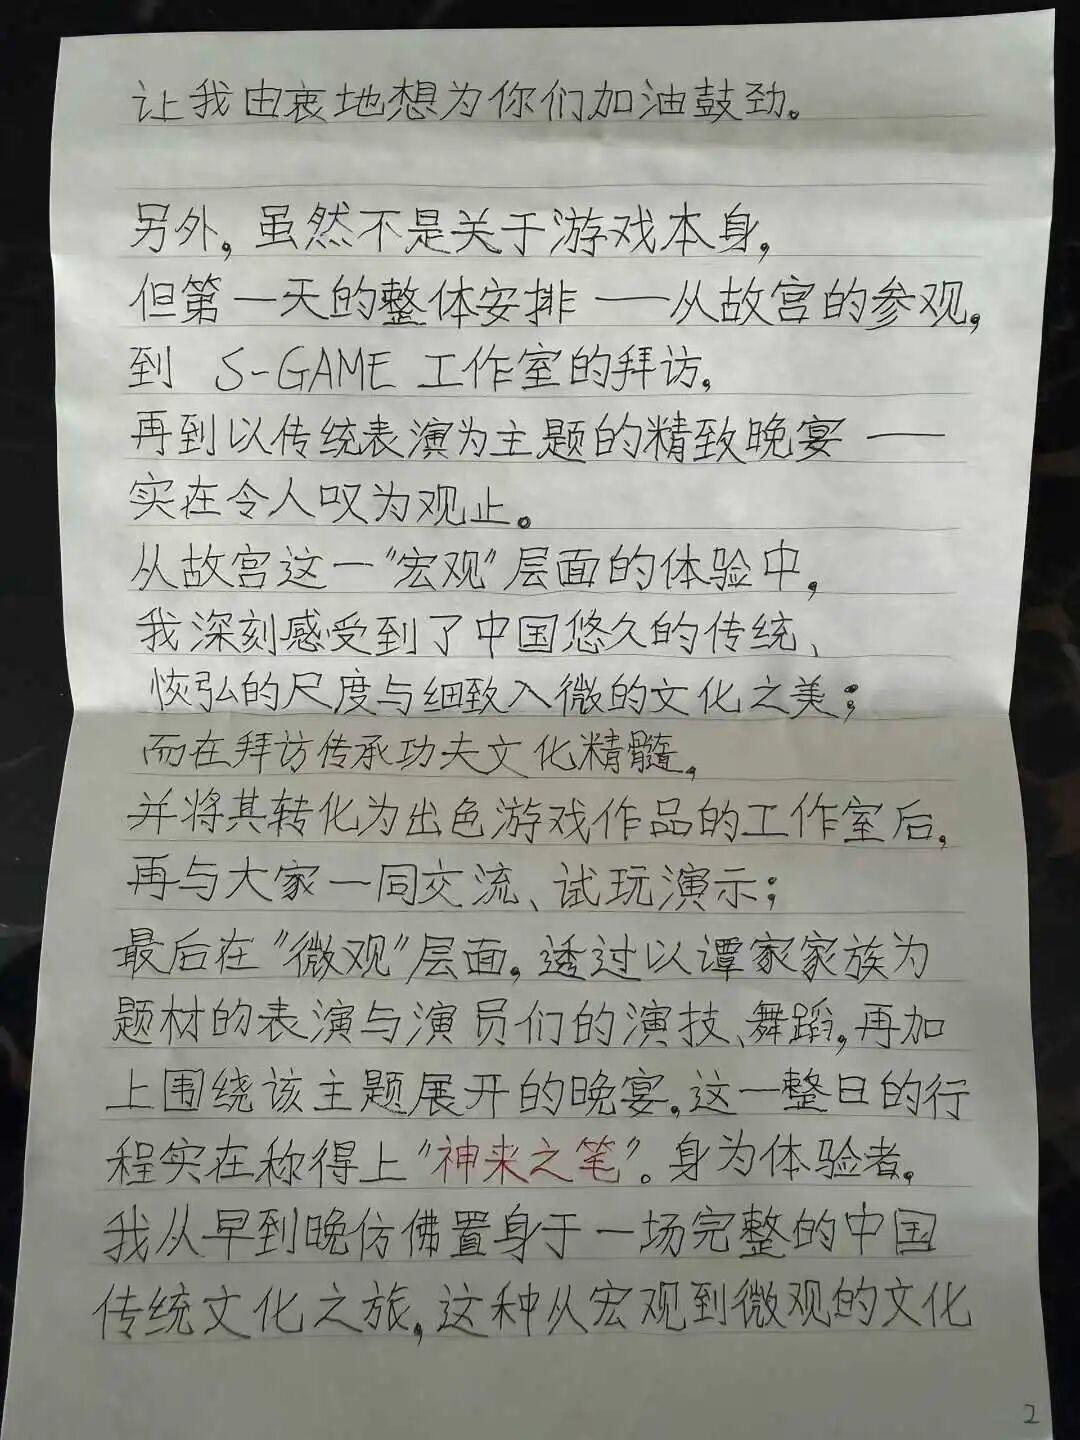 让我由衷地想为你们加油鼓劲。
另外，虽然不是关于游戏本身，
但第一天的整体安排 ——从故宫的参观，
到 S-GAME 工作室的拜访，
再到以传统表演为主题的精致晚宴 ——
实在令人叹为观止。
从故宫这一"宏观"层面的体验中，
我深刻感受到了中国悠久的传统、
恢弘的尺度与细致入微的文化之美；
而在拜访传承功夫文化精髓，
并将其转化为出色游戏作品的工作室后，
再与大家一同交流、试玩演示；
最后在"微观"层面，透过以谭家家族为
题材的表演与演员们的演技、舞蹈，再加
上围绕该主题展开的晚宴，这一整日的行
程实在称得上"神来之笔"。身为体验者，
我从早到晚仿佛置身于一场完整的中国
传统文化之旅，这种从宏观到微观的文化
2